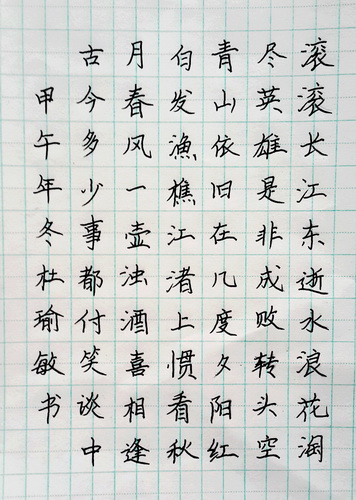 滚滚长江东逝水浪花淘
尽英雄是非成败转头空
青山依旧在几度夕阳红
白发漁樵江渚上惯看秋
月春风一壶浊酒喜相逢
古今多少事都付笑谈中
甲午年冬杜瑜敏书